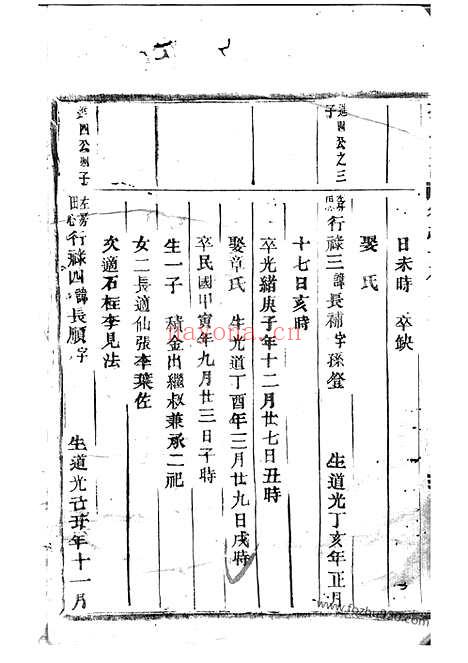 日未時 卒缺
娶 氏
進四公之三子
行祿三諱長補字孫燈 生道光丁亥年正月
十七日亥時
卒光緒庚子年十二月廿七日丑時
娶章氏 生光道丁酉年三月廿九日戌時
卒民國甲寅年九月廿三日子時
生一子 積金出繼叔兼承二祀
女二長適仙張李葉佐
次適石桩李見法
進四公四子
行祿四諱長順字 生道光己丑年十一月
nayona.cn